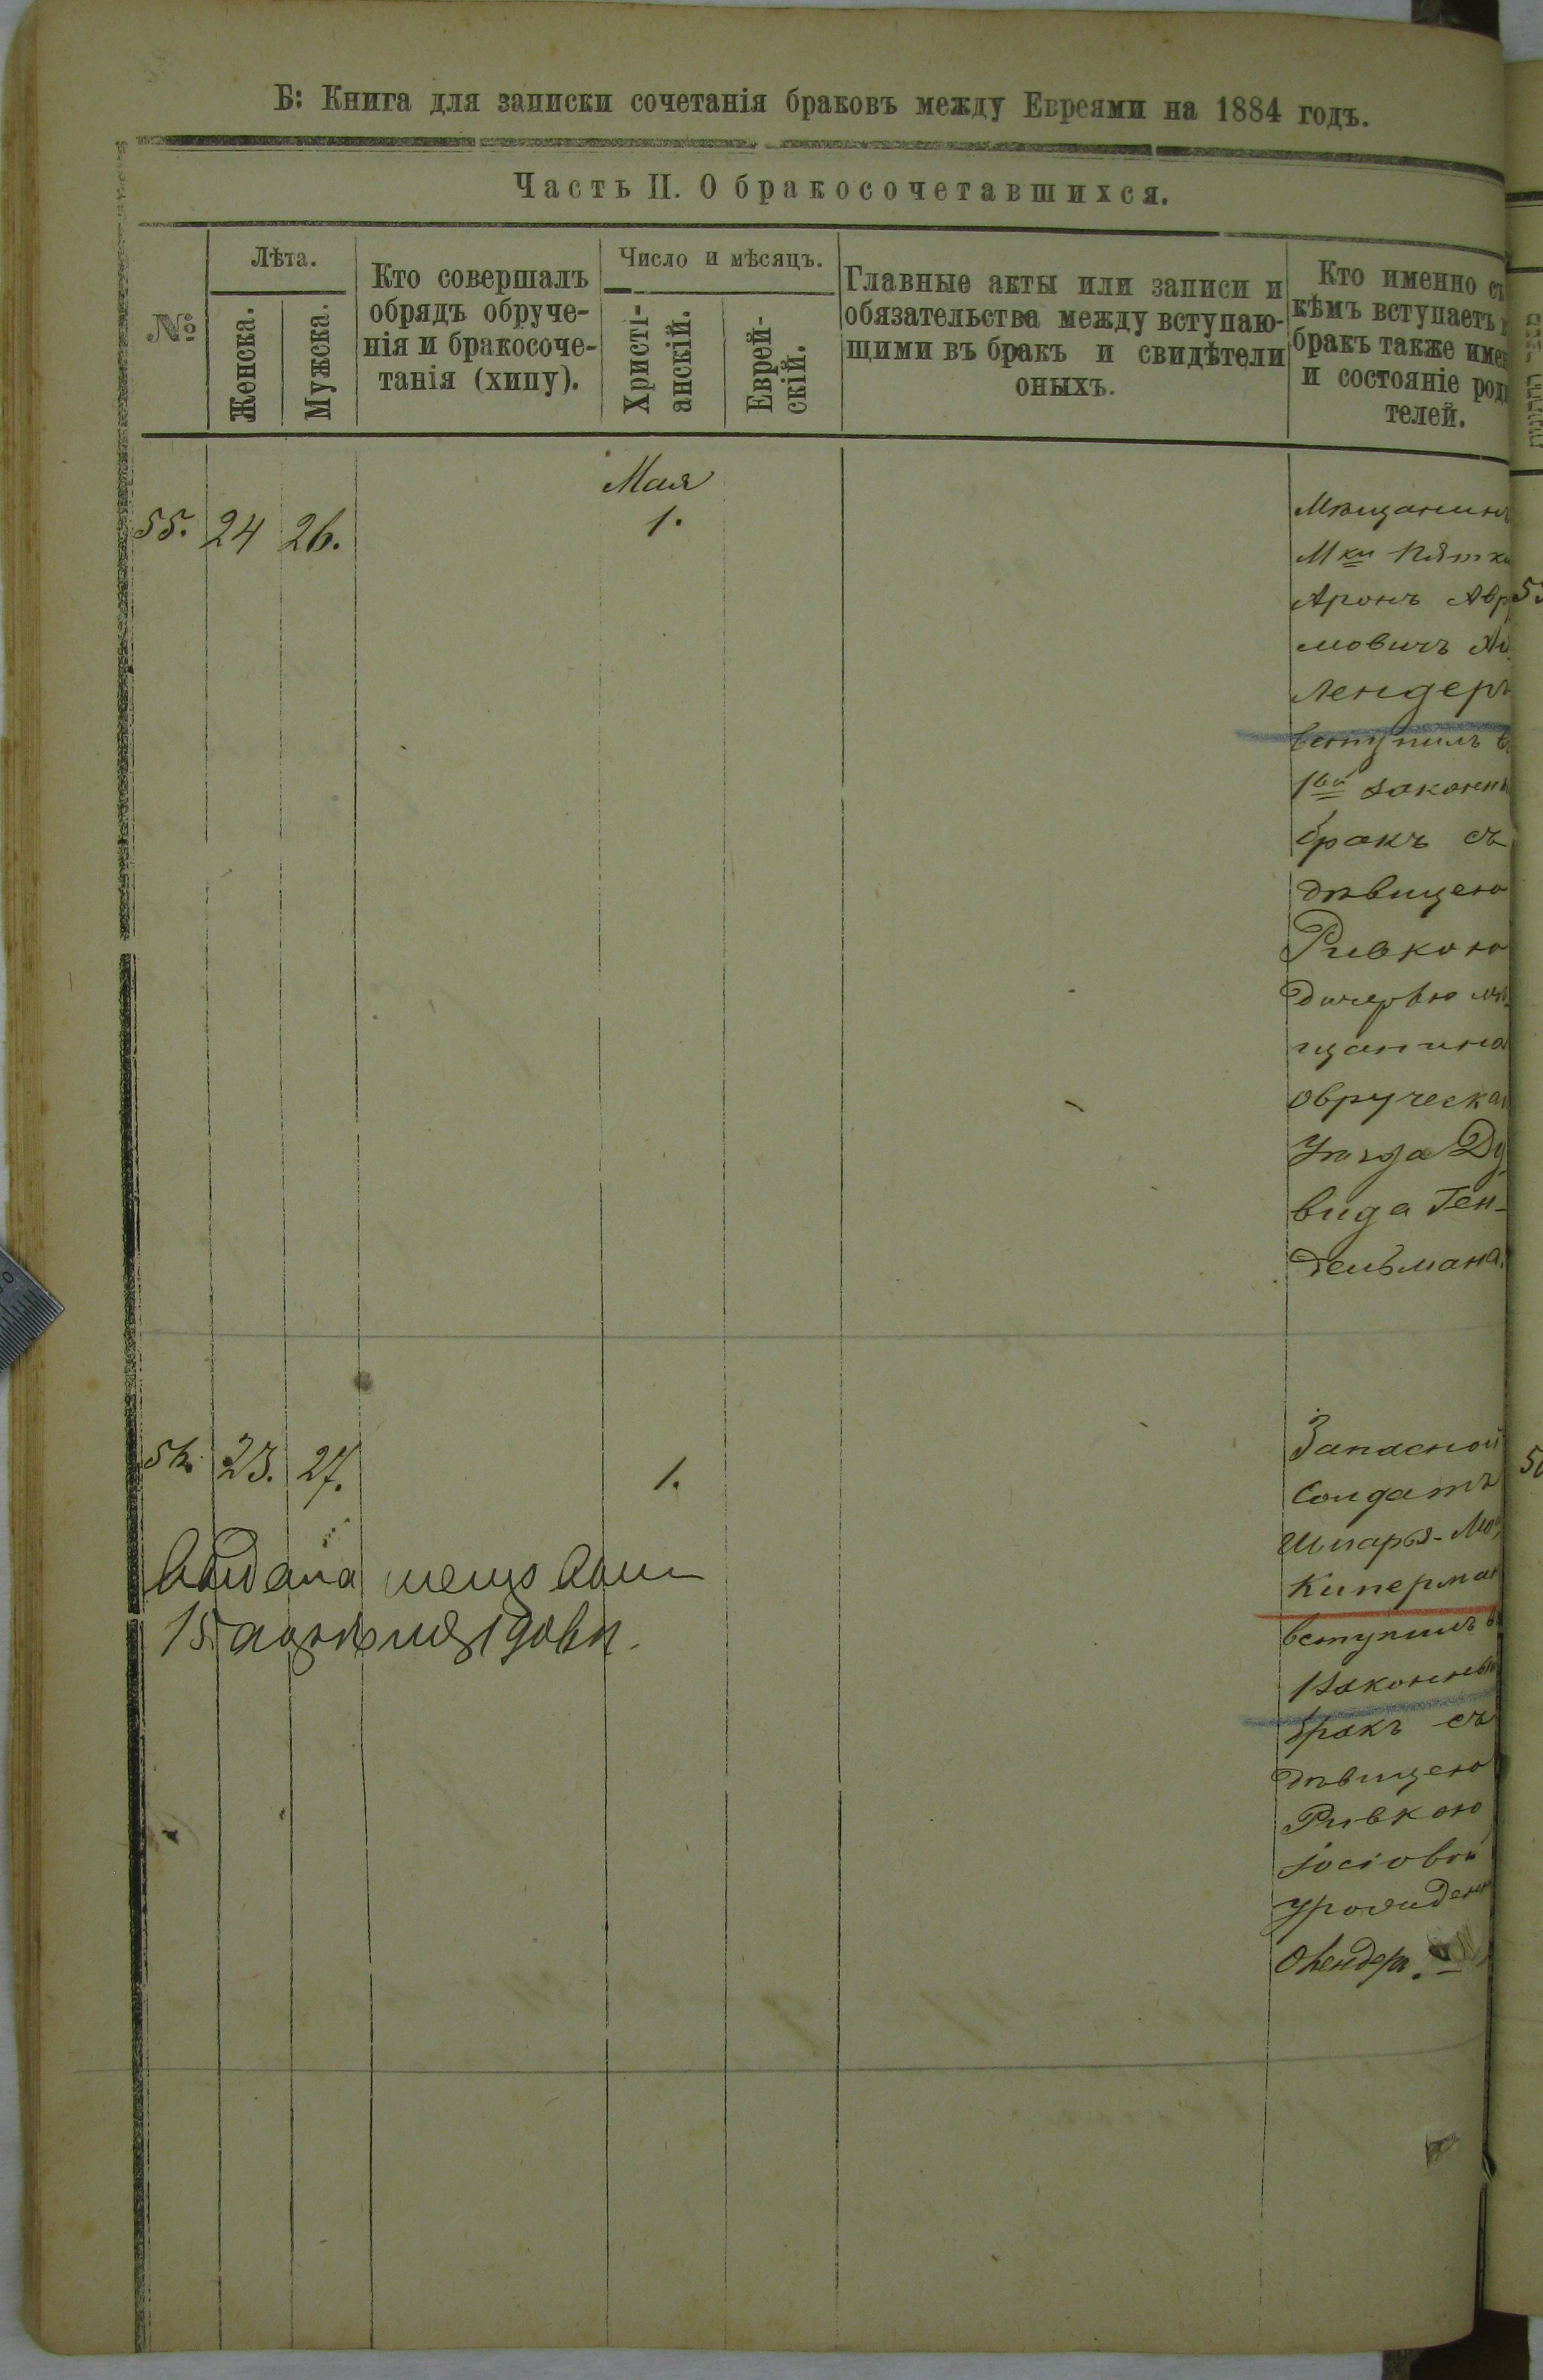 Б: Книга для записки сочетанія браковъ между Евреями на 1884 годъ.
Часть II. О бракосочетавшихся.
№
Лѣта.
Женска.
Мужска.
Кто совершалъ
обрядъ обруче-
нія и бракосоче-
танія (хипу).
Число и мѣсяцъ.
Христі-
анскій.
Еврей-
скій.
Главные акты или записи и
обязательства между вступаю-
щими въ бракъ и свидѣтели
оныхъ.
Кто именно съ
кѣмъ вступаетъ
бракъ также име
и состояніе роди
телей.
Мая
55. 24 26. 1.
Мѣщанинъ
Мки Пятки
Аронъ Авр
мовичъ
лендеръ
вступилъ в
1вый законн
бракъ съ
дѣвицею
Ривкою
дочерью мѣ-
щанина
Овручскаг
уѣзда Ду
вида Ген-
дельмана.
56. 23. 27. 1.
Запасной
Солдатъ
Шмарья-Мо
Киперман
вступилъ в
1 законный
бракъ съ
дѣвицею
Ривкою
Іосіовой
урожден
Выдана
15 1906 г.